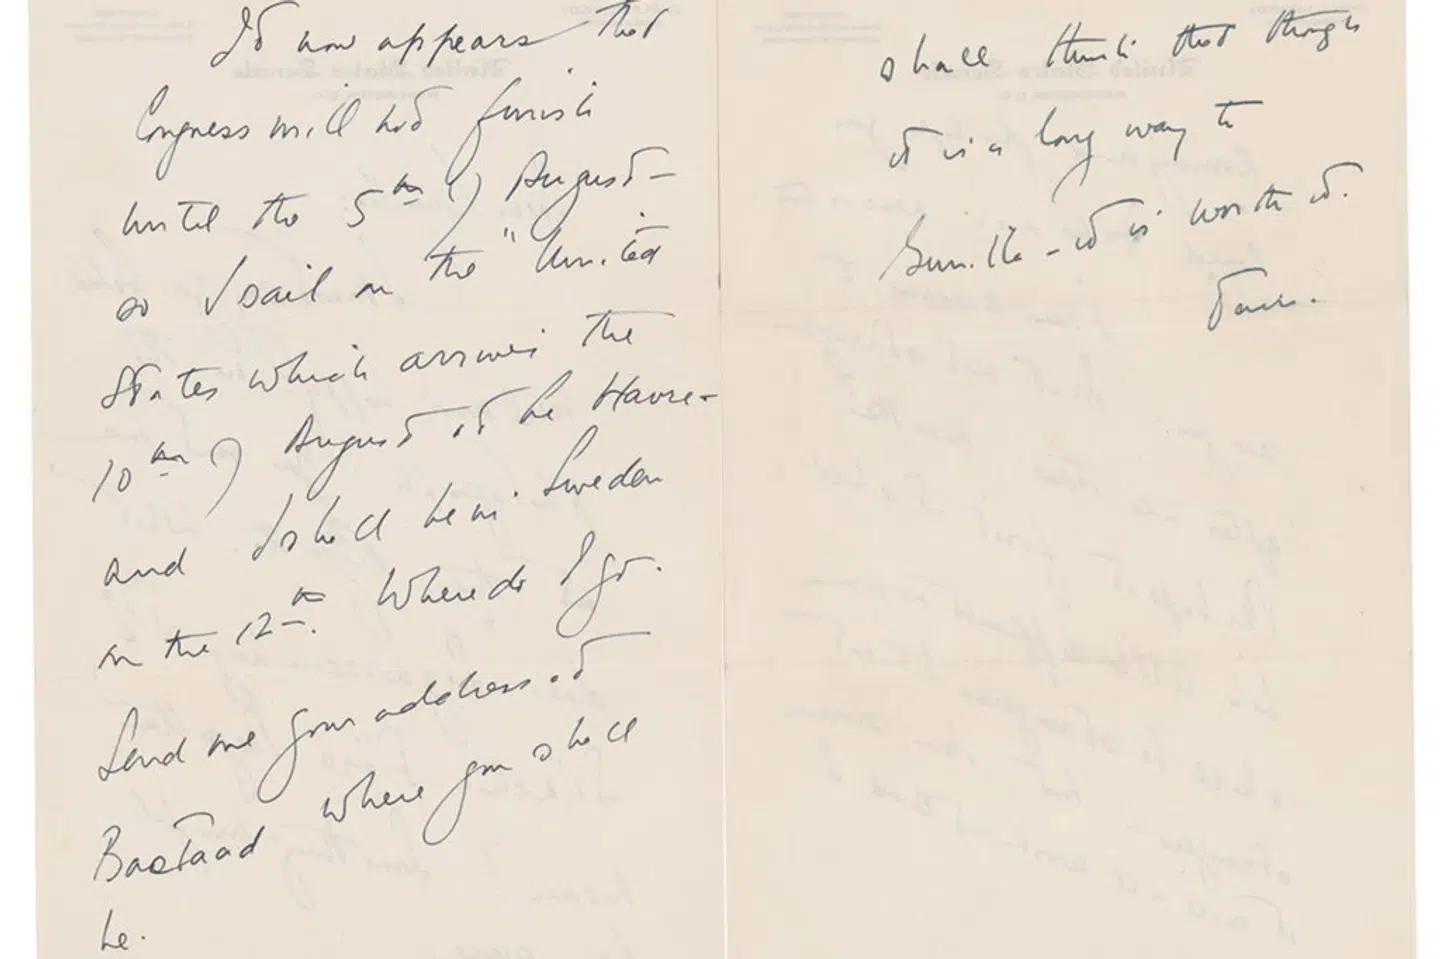 It now appears that
Congress will not finish
until the 5th of August -
so I sail on the "United
States which arrives the
10th of August at Le Havre -
and I shall be in Sweden
on the 12th. Where do I go.
Send me your address at
Bastaad where you shall
be.
shall think that though
it is a long way to
Gunilla - it is worth it.